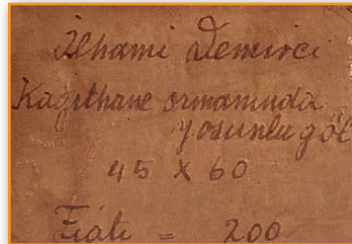 İlhami Demirci
Kağıthane ormanında
yosunlu göl
45 X 60
Fiatı = 200